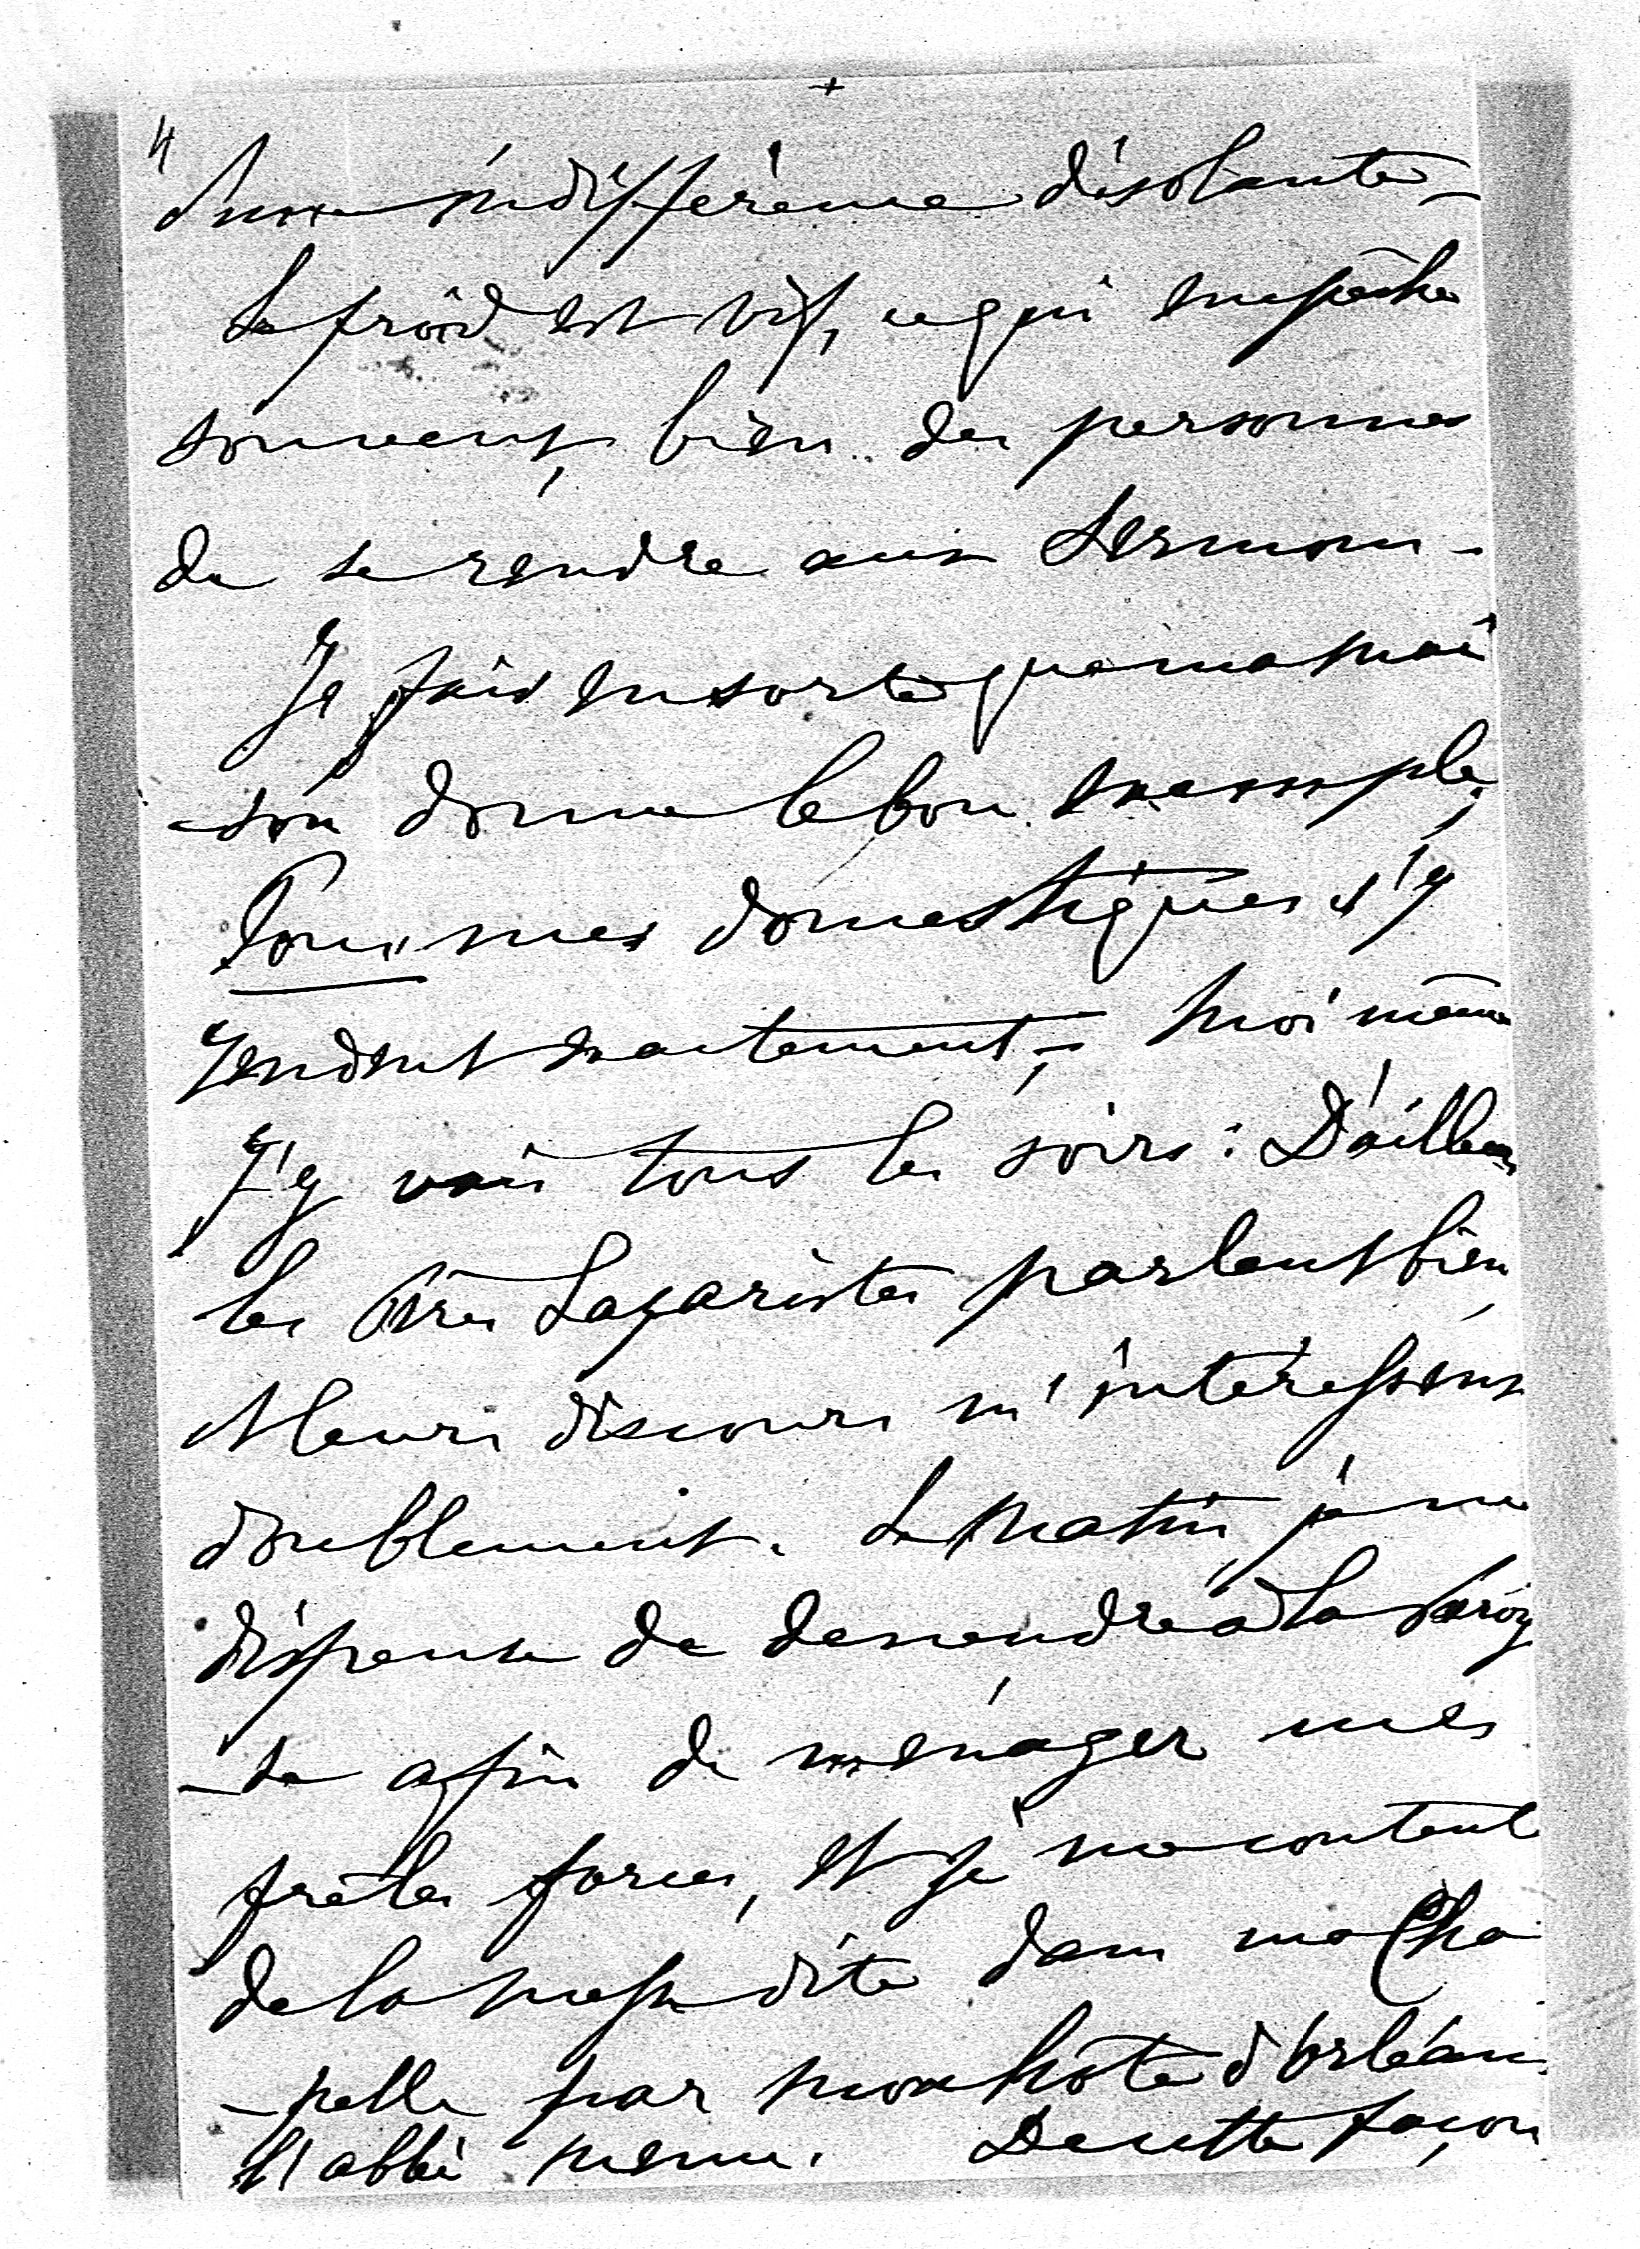 +
4
d'une indifférence désolante -
Le froid est vif, ce qui empêche
souvent, bien des personnes
de se rendre aux Sermons -
Je fais en sorte que ma mai
-son donne le bon exemple,
Tous mes domestiques s'y
rendent exactement, - Moi même
J'y vais tous les soirs : D'ailleurs
les Pères Lazaristes parlent bien,
et leurs discours m'intéressent
doublement. Le Matin je me
dispense de descendre à la Paroi
-sse afin de ménager mes
frêles forces, et je me contente
de la Messe dite dans ma Cha
-pelle par mon hôte d'Orléans
l'abbé . De cette façon